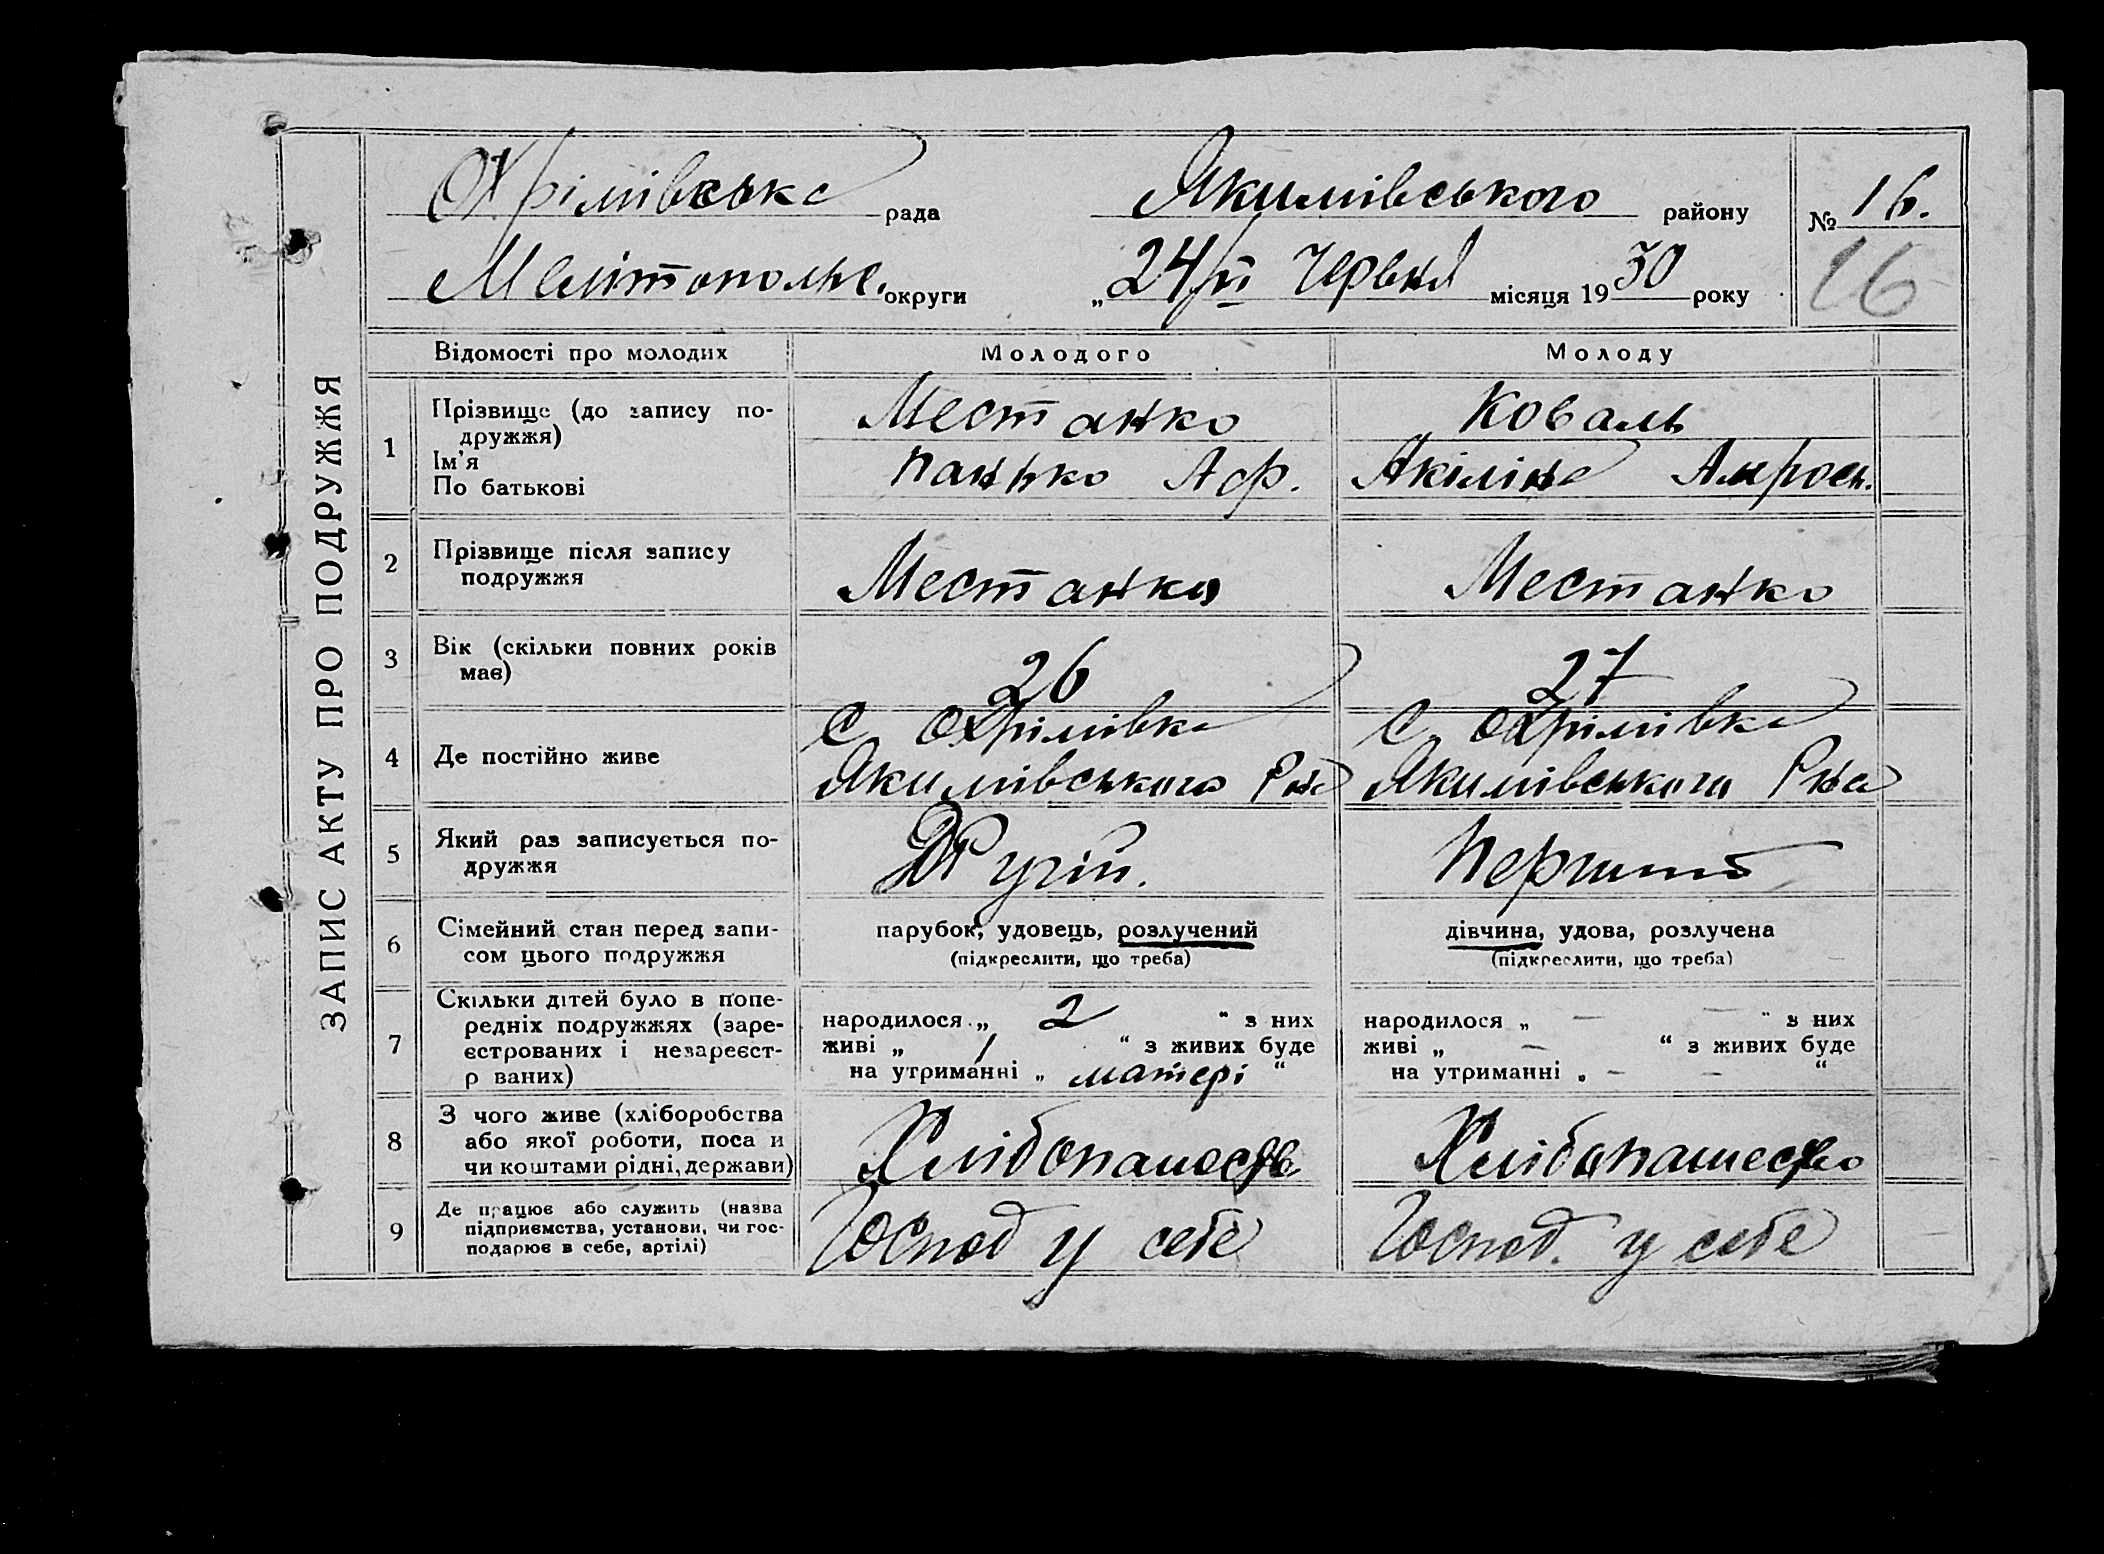 ЗАПИС АКТУ ПРО ПОДРУЖЖЯ
Охрімівська рада Якимівського району № 16.
Мелітопольс. округи „24/VI Червня місяця 1930 року 16
Відомості про молодих Молодого Молоду
1 Прізвище (до запису по- Местанко Коваль
дружжя)
Ім'я Панько Аф. Якіліна Амрос.
По батькові
2 Прізвище після запису
подружжя Местанко Местанко
3 Вік (скільки повних років
має) 26 27
4 Де постійно живе С. Охрімівка С. Охрімівка
Якимівського Р-на Якимівського Р-на
5 Який раз записується по-
дружжя Другій. Перший
6 Сімейний стан перед запи- парубок, удовець, розлучений дівчина, удова, розлучена
сом цього подружжя (підкреслити, що треба) (підкреслити, що треба)
7 Скільки дітей було в попе-
редніх подружжях (заре- народилося „ 2 “ з них народилося „ — “ з них
єстрованих і незареєст- живі „ 1 “ з живих буде живі „ — “ з живих буде
р ваних) на утриманні „ матері “ на утриманні „ — “
8 З чого живе (хліборобства
або якої роботи, поса и Хлібопашеств Хлібопашество
чи коштами рідні, держави)
9 Де працює або служить (назва
підприємства, установи, чи гос- Господ у себе Господ. у себе
подарює в себе, артілі)